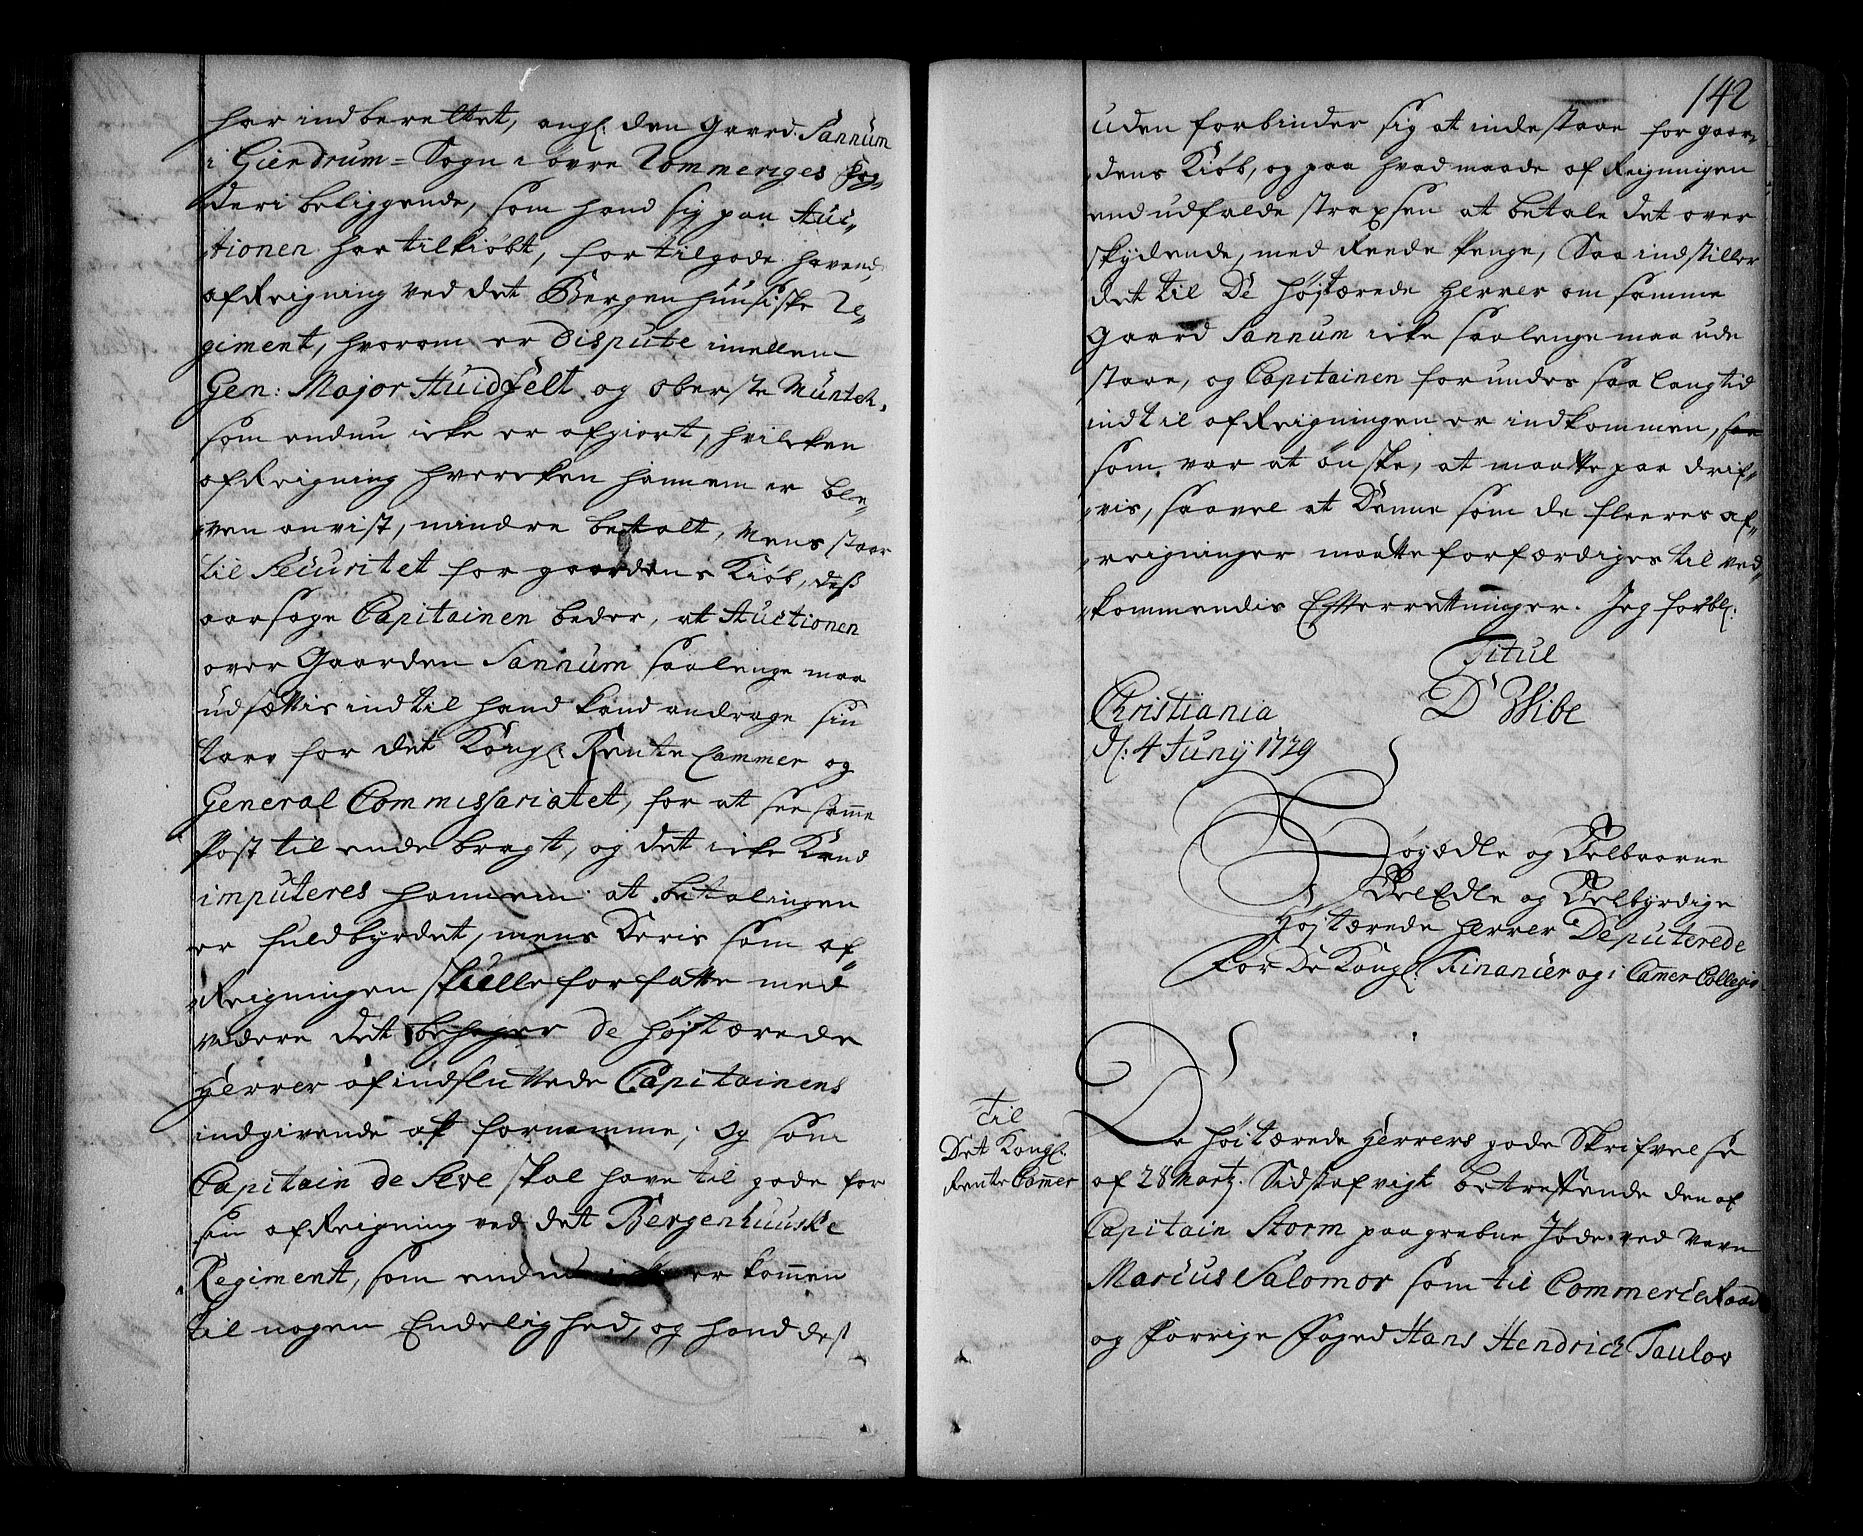 har indberettet, angl: den Gaard Sannum
i Gierdrum-Sogn i øvre Rommeriges Fog-
deri beliggende, som hand sig paa Auc-
tionen har tilkiøbt, for tilgode havend,
afReigning ved det Bergenhuusiske Re-
giment, hvorom er Dispute imellem
Gen: Major Huidfelt og Oberste Münteh,
som endnu icke er afgiort, hvilcken
afReigning hvercken hannem er ble-
ven anvist, mindre betalt, mens staar
til Securitet for gaardens Kiøb, diss
aarsage Capitainen beder, at Auctionen
over Gaarden Sannum saalenge maa
udsættis indtil hand kand andrage sin
tarv for det Kongl: Rente Cammer og
General Commissariatet, for at see samme
Post til ende bragt, og det icke Kand
imputeres hannem at betalingen
er fuldbyrdet, mens Deris som af-
Reigningen skulle forfatte med
videre det behager de højstærede
Herrer af indsluttede Capitainens
indgivende at fornemme; Og som
Capitain de Seve skal have til gode for
sin afReigning ved det Bergenhuuske
Regiment, som endnu icke er kommen
til nogen Endelighed, og hand dess
142
uden forbinder sig at indestaae for gaar-
dens Kiøb, og paa hvad maade afReigningen
end udfalde strapsen at betale det over
skydende, med Reede Penge, Saa indstiller
det til De højstærede Herrer om samme
Gaard Sannum icke saalenge maa ude
staae, og Capitainen forundes saa lang tid
indtil afReigningen er indkommen, saa
som var at ønske, at maatte paa drif-
vis, saavel at Denne som de fleeres af-
reigninger maatte forfærdiges til ved-
kommendis Efterrettninger. Jeg forbl:
Titul
D Wibe
Christiania
d: 4 Juny 1729
Høyædle og Velbaarne
VelEdle og Velbyrdige
Højstærede Herrer Deputerede
for De Kongl: Financier og Camer Collegio
til
Det Kongl:
Rente Camer
De højstærede Herrers gode Skrifvelse
af 28 Marty. Sidst afvigt betreffende den af
Capitain Storm paagrebne Jøde ved Navn
Marcus Salomor som til Commerce Raad
og Forrige Foged Hans Hendrich Taulov